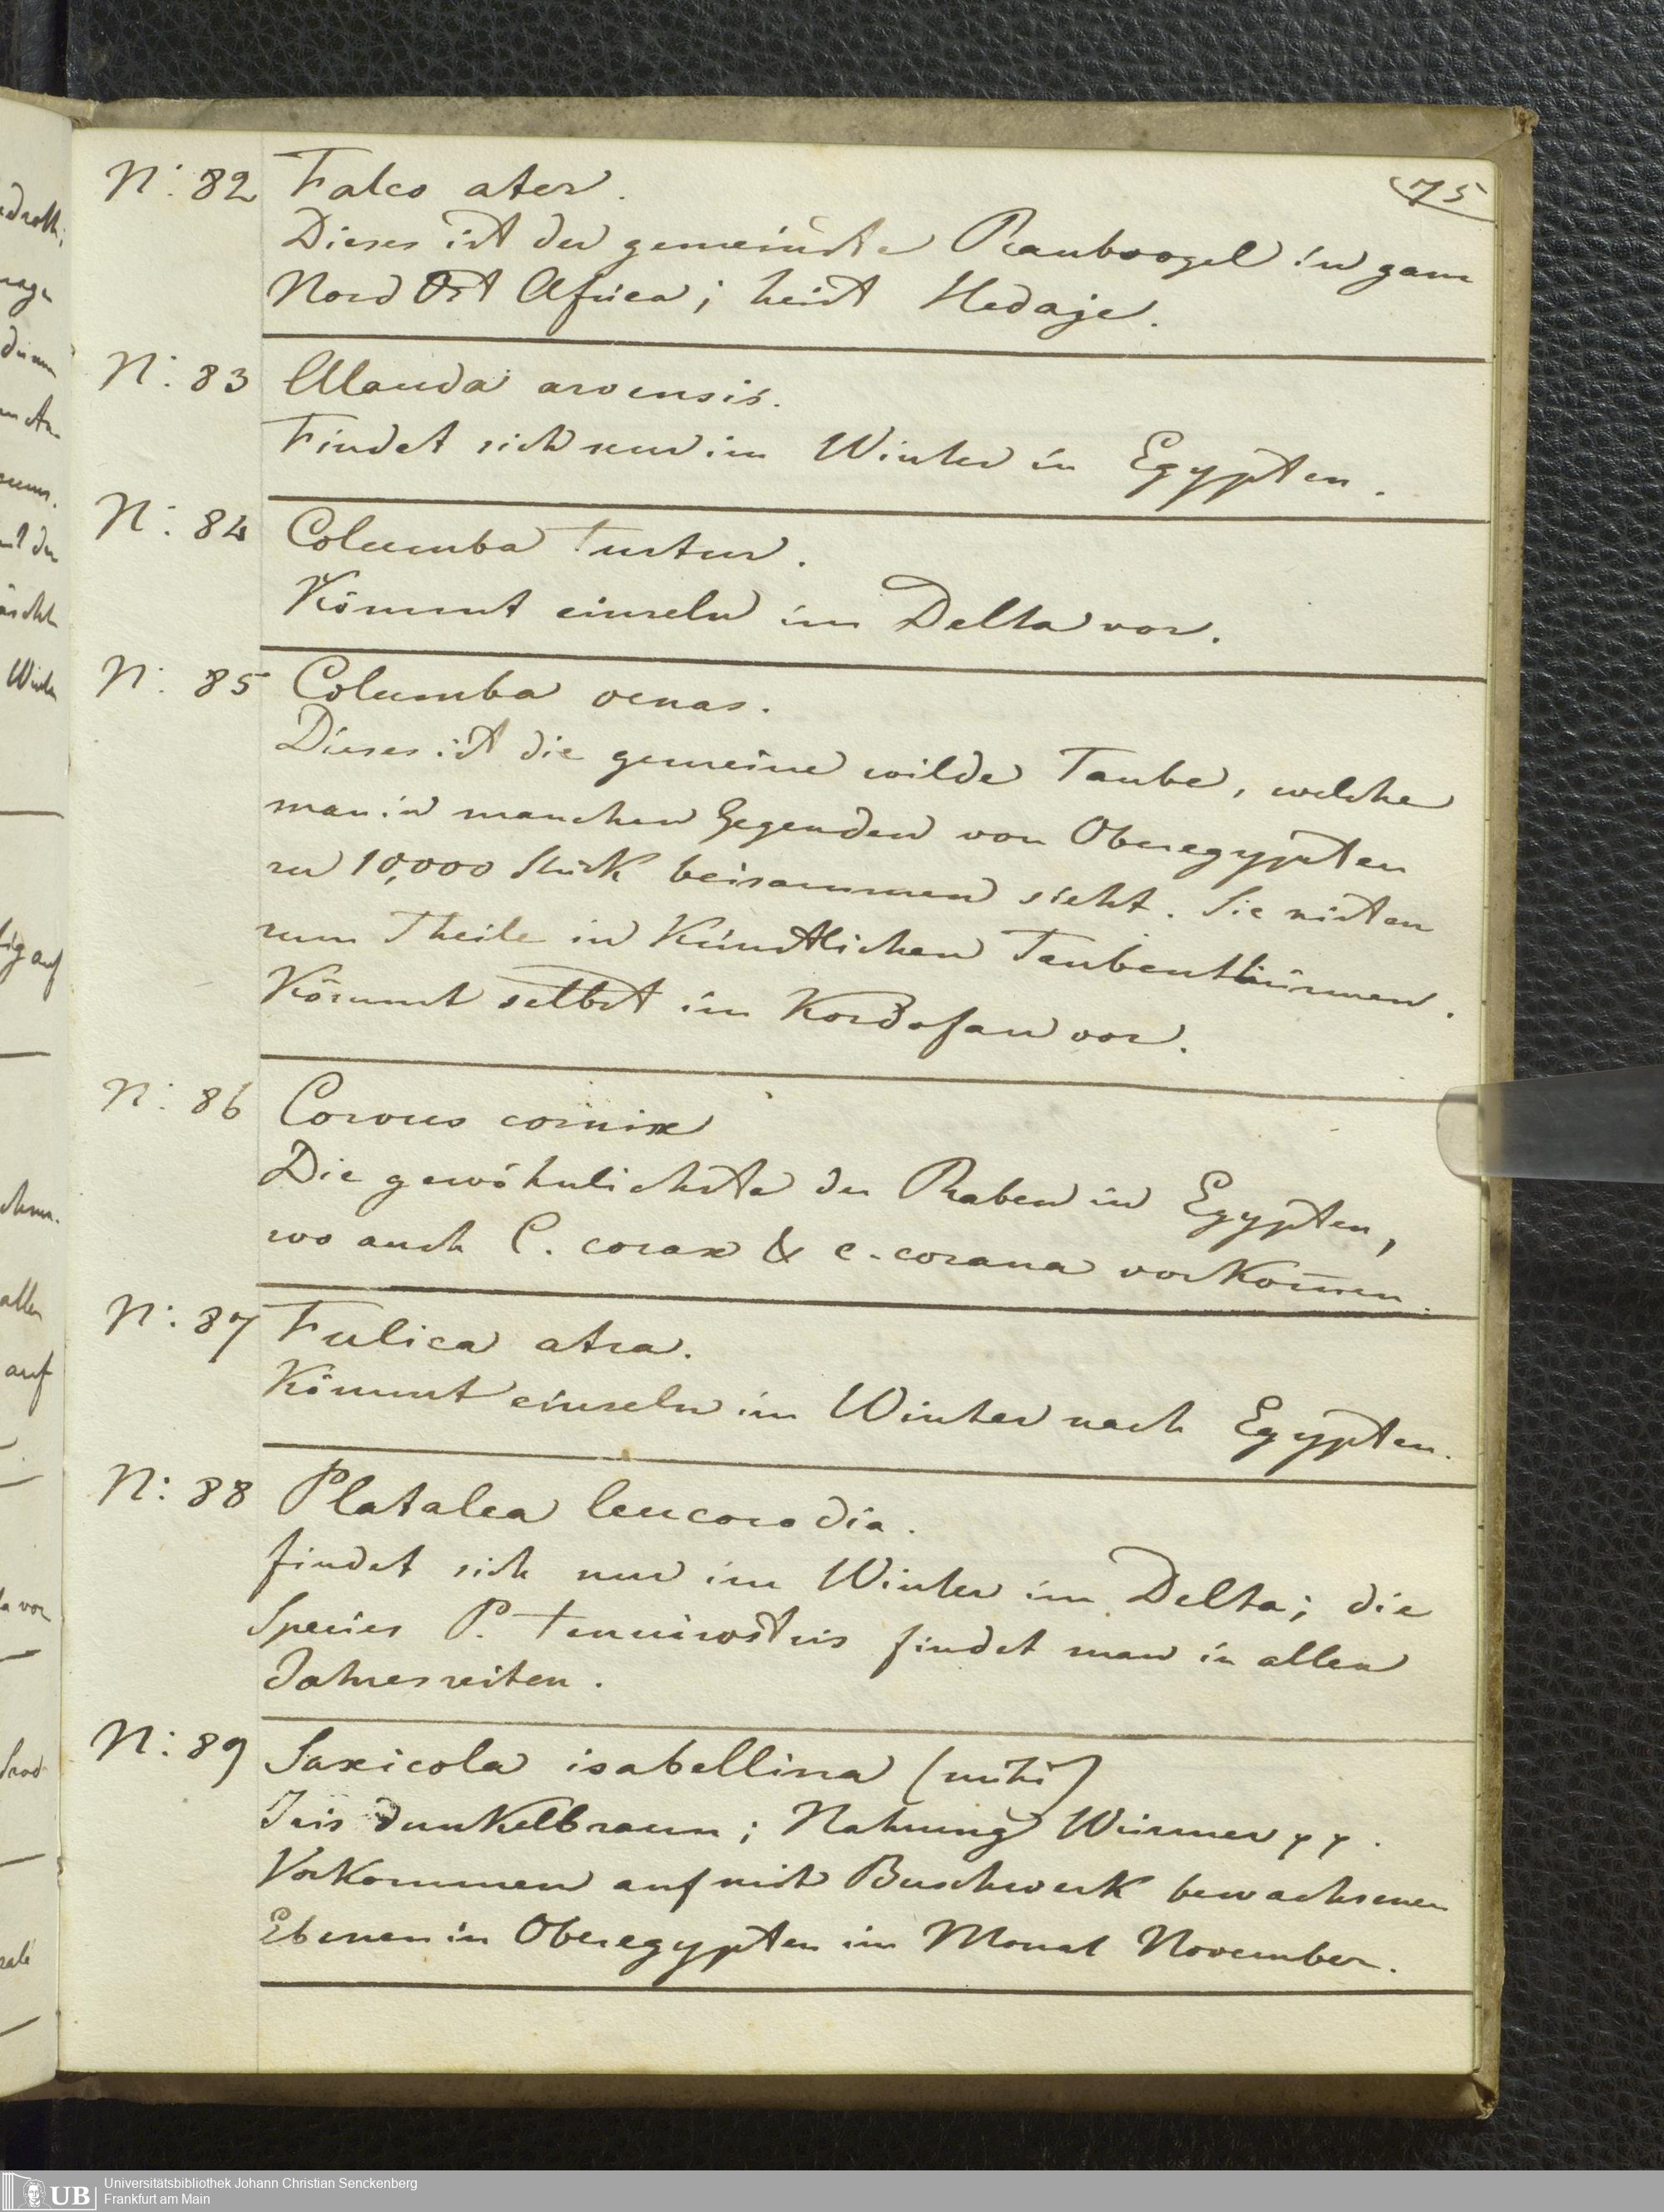 75
N: 82 Falco ater.
Dieses ist der gemeinste Raubvogel in ganz
Nord Ost Africa; heist Hedaje.
N: 83 Alauda arvensis.
Findet sich nur im Winter in Egypten.
N: 84 Columba turtur.
Kömmt einzeln im Delta vor.
N: 85 Columba oenas.
Dieses ist die gemeine wilde Taube, welche
man in manchen Gegenden von Oberegypten
zu 10,000 Stück beisammen sieht. Sie nisten
zum Theile in Künstlichen Taubenthürmen.
Kömmt selbst im Kordofan vor.
N: 86 Corvus cornix
Die gewöhnlichste der Raben in Egypten,
wo auch C. corax & c. corana vorkom̅en.
N: 87 Fulica atra.
Kömmt einzeln im Winter nach Egypten.
N: 88 Platalea leucorodia.
findet sich nur im Winter im Delta; die
Species P. tenuirostris findet man in allen
Jahreszeiten.
N: 89 Saxicola isabellina (mihi)
Iris dunkelbraun; Nahrung Würmer pp.
Vorkommen auf mit Buschwerk bewachsenen
Ebenen in Oberegypten im Monat November.
auf
Winter
allen
auf
UB Universitätsbibliothek Johann Christian Senckenberg
Frankfurt am Main